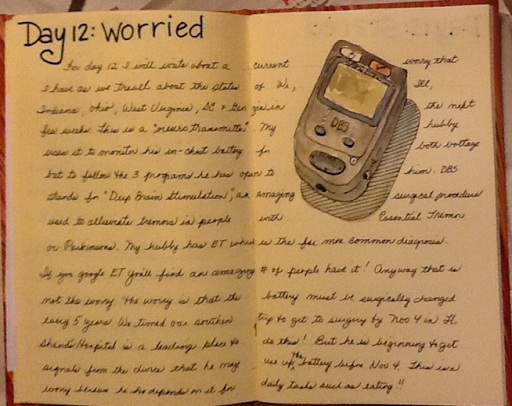 Day 12: Worried
For day 12 I will write about a current worry that
I have as we travel about the states of Wi, Ill,
Indiana, Ohio, West Virginia, SC & Georgia in the next
few weeks. This is a My hubby
uses it to monitor his in-chest battery for both voltage
but to follow the 3 programs he has open to him. DBS
stands for "Deep Brain Stimulation", an amazing surgical procedure
used to alleviate tremors in people with Essential Tremor
or Parkinsons. My hubby has ET which is the far more common diagnosis.
If you google ET you'll find an amazing # of people have it! Anyway that is
not the worry. The worry is that the battery must be surgically changed
every 5 years. We timed our trip to get to surgery by Nov 4 in FL
Shands Hospital is a leading place to do this! But he is beginning to get
signals from the device that he may use up the battery before Nov 4. This is a
worry because he depends on it for daily tasks such as eating!!
DBS